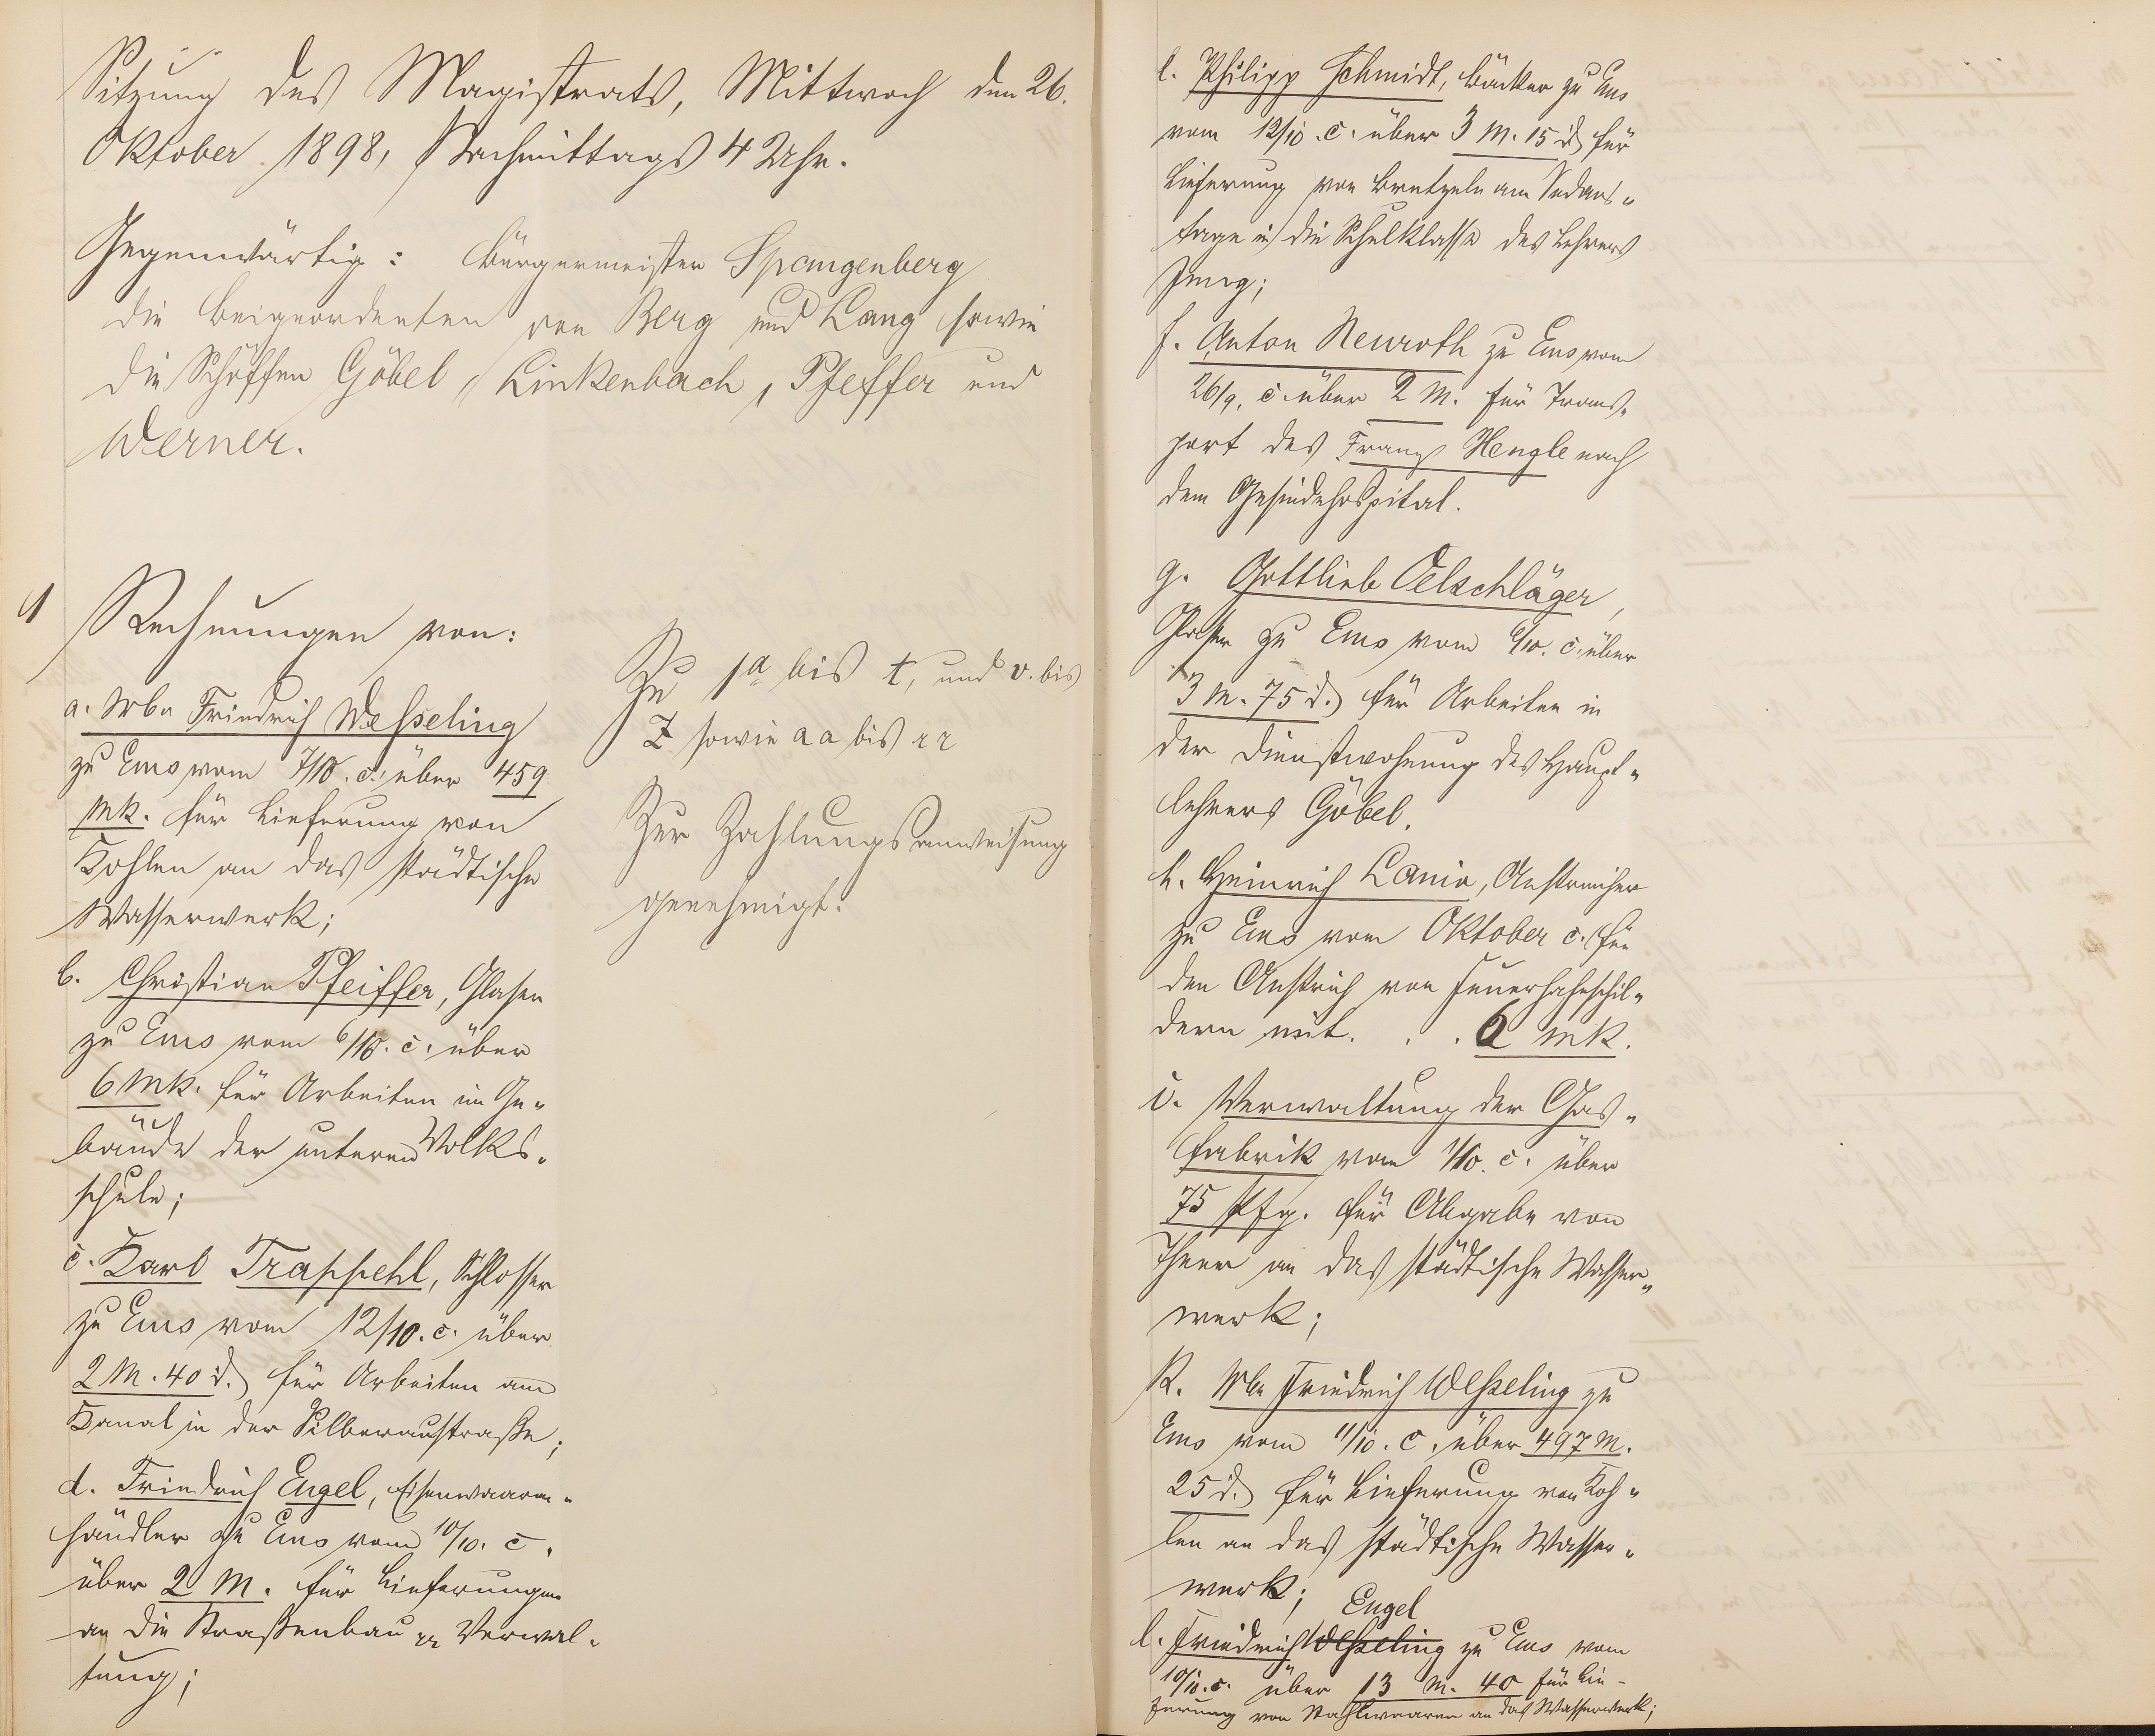 Sitzung des Magistrats, Mittwoch den 26.
Oktober 1898, Nachmittags 4 Uhr.
Gegenwärtig: Bürgermeister Spangenberg
die Beigeordneten von Berg und Lang sowie
die Schöffen Göbel, Linkenbach, Pfeffer und
Werner.
1 Rechnungen von:
a. Wbe Friedrich Wesseling
zu Ems vom 7/10. c. über 459
Mk. für Lieferung von
Kohlen an das städtische
Wasserwerk;
b. Christian Pfeiffer, Glaser
zu Ems vom 6/10. c. über
6 Mk. für Arbeiten im Ge-
bäude der unteren Volks-
schule;
c. Karl Trappehl, Schlosser
zu Ems vom 12/10. c. über
2 M. 40 d. für Arbeiten am
Kanal in der Silberaustraße;
d. Friedrich Engel, Eisenwaaren-
händler zu Ems vom 10/10. c.
über 2 M. für Lieferungen
an die Straßenbau Verwal-
tung;
Zu 1a bis t, und v. bis
z sowie aa bis rr
Zur Zahlungsanweisung
genehmigt.
e. Philipp Schmidt, Bäcker zu Ems
vom 12/10. c. über 3 M. 15 d. für
Lieferung von Bretzeln am Sedans-
tage in die Schulklasse des Lehrers
f. Anton Neuroth zu Ems vom
26/9. c. über 2 M. für Trans-
port des Franz Hengle nach
dem Gesindehospital.
g. Gottlieb Oelschläger,
Glaser zu Ems vom 6/10. c. über
3 M. 75 d. für Arbeiten in
der Dienstwohnung des Haupt-
lehrers Göbel.
h. Heinrich Lanio, Anstreicher
zu Ems vom Oktober c. für
den Anstrich von Feuerhahnschil-
dern mit . . . 6 Mk.
i. Verwaltung der Gas-
fabrik vom 1/10. c. über
75 Pfg. für Abgabe von
Theer an das städtische Wasser-
werk;
k. Wbe Friedrich Wesseling zu
Ems vom 11/10. c. über 497 M.
25 d. für Lieferung von Koh-
len an das städtische Wasser-
werk;
Engel
l. Friedrich Wesseling zu Ems vom
10/10. c. über 13 M. 40 für Lie-
ferung von Stahlwaaren an das Wasserwerk;